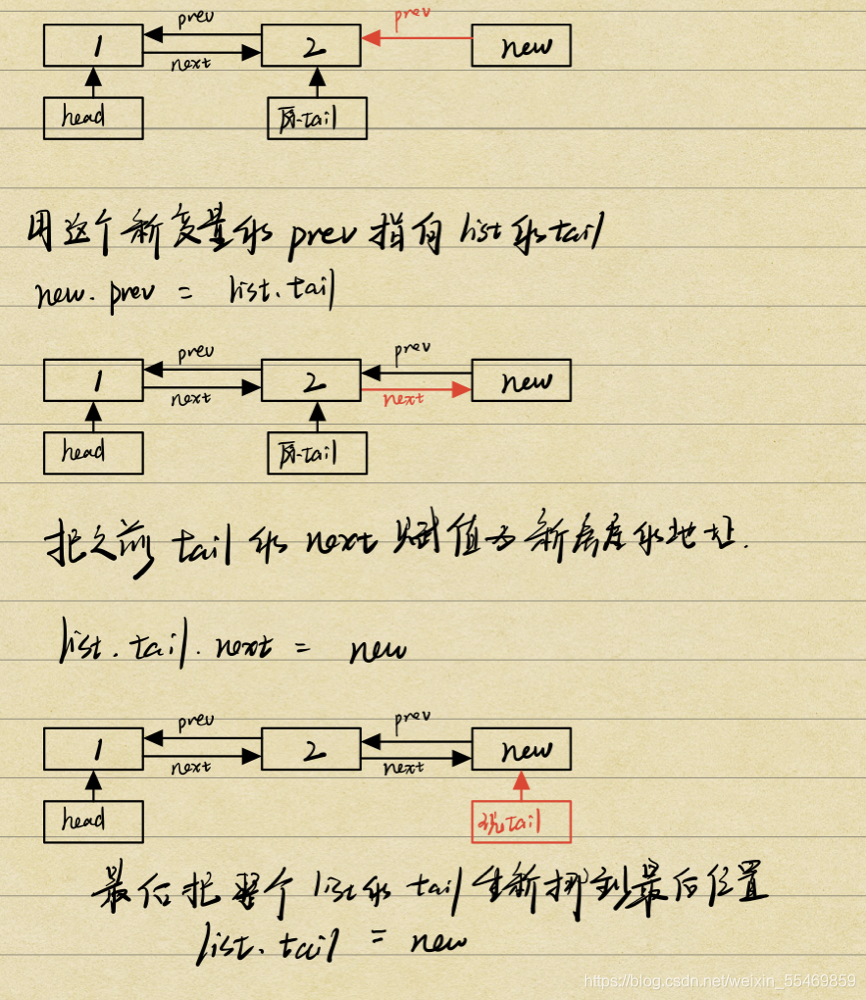 prev prev
1 2 new
next
head 原tail
用这个新变量的 prev 指向 list 的 tail
new. prev = list. tail
prev prev
1 2 new
next next
head 原tail
把之前 tail 的 next 赋值为新高度的地址.
list. tail. next = new
prev prev
1 2 new
next next
head 现tail
最后把整个 list 的 tail 重新挪到最后位置
list. tail = new
https://blog.csdn.net/weixin_55469859